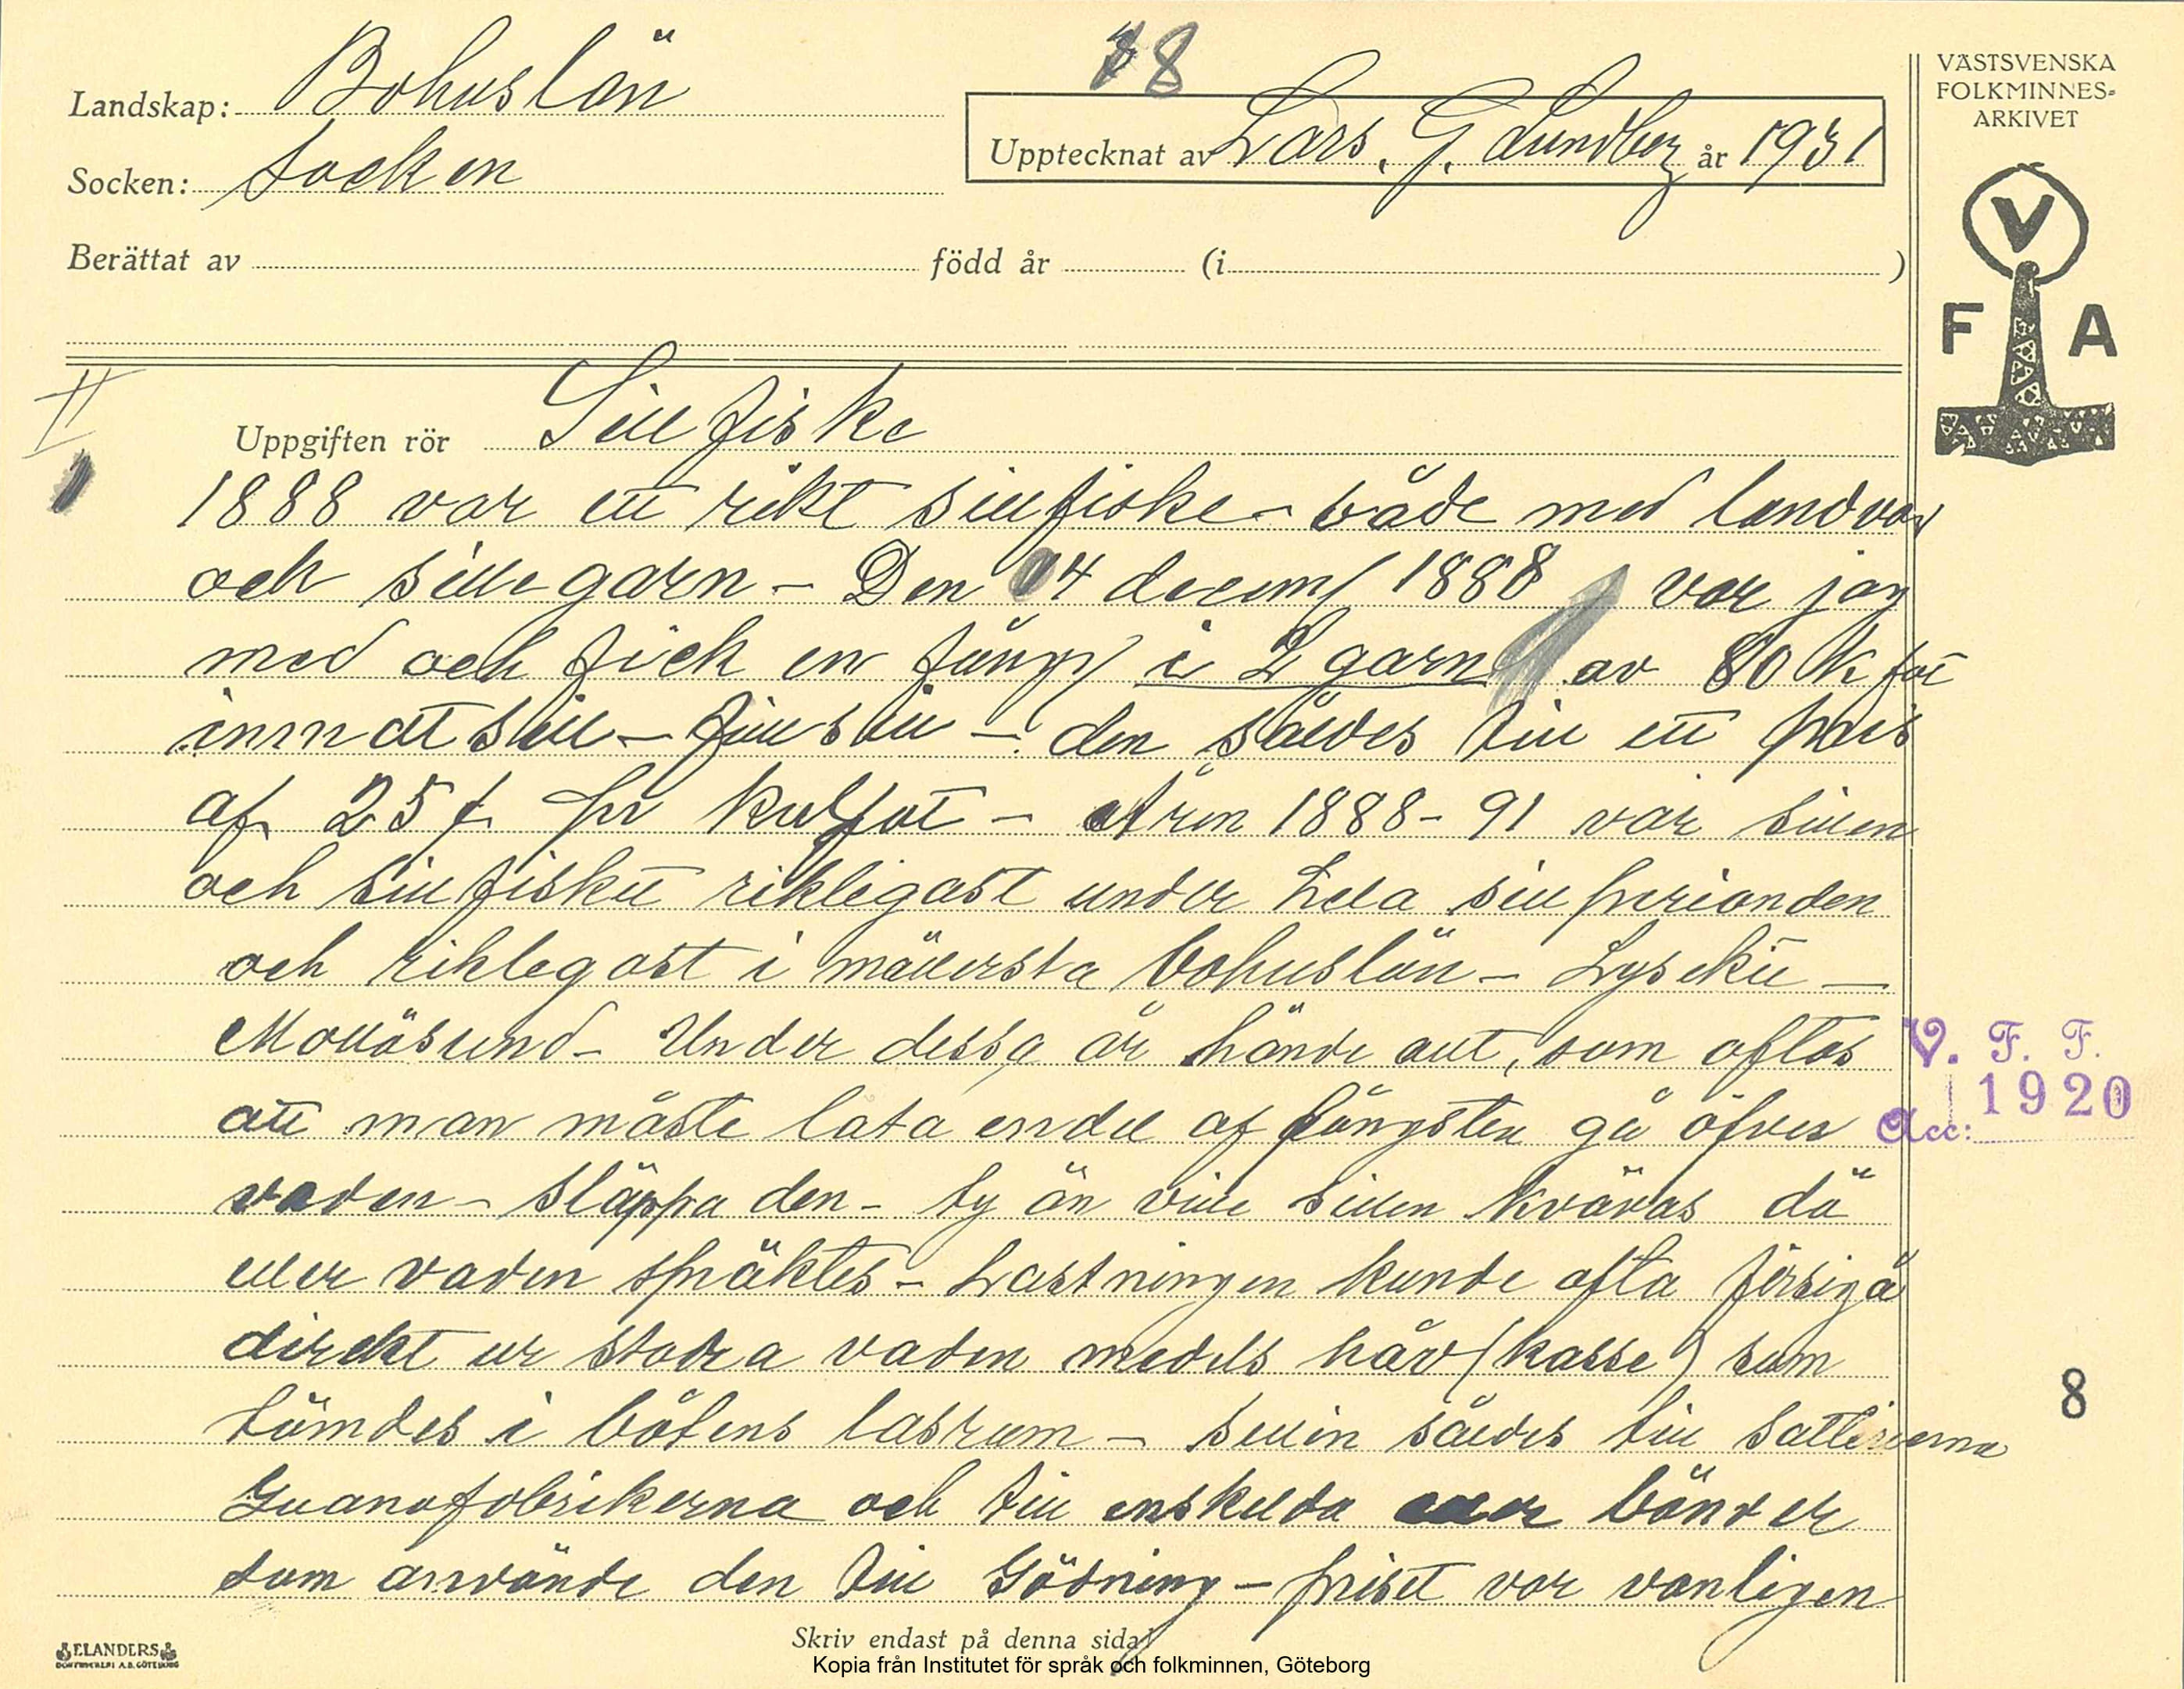 18
VÄSTSVENSKA
FOLKMINNES-
ARKIVET
Landskap: Bohuslän
Upptecknat av Lars. G. Lundberg år 1931
Socken: Tocken
Berättat av född år (i )
V
F A
II
Uppgiften rör Sillfiske
1888 var ett rikt sillfiske - både med landvad
och sillegarn - Den 14 decem/ 1888 var jag
med och fick en fångst i 2 garn av 80 K fot
inmätt sill - - den såldes till ett pris
af 25 f pr kubfot - Åren 1888-91 var sillen
och sillfisket rikligast under hela sillperioden
och rikligast i mällersta Bohuslän - Lysekil -
Mollösund - Under dessa år hände allt, som oftas
att man måste lata en del af fångsten gå öfver
vaden - släppa den - ty än ville sillen kvävas då
eller vaden spräktes - Lastningen kunde ofta försigå
direkt ur stora vaden medels håv (kasse) som
tömdes i båtens lasrum - sillen såldes till salterierna
Guanofabrikerna och till enskilda bönder
som använde den till Gödning - priset var vanligen
V. F. F.
1920
Acc:
8
ELANDERS
BOKTRYCKERI A.B. GÖTEBORG
Skriv endast på denna sida!
Kopia från Institutet för språk och folkminnen, Göteborg